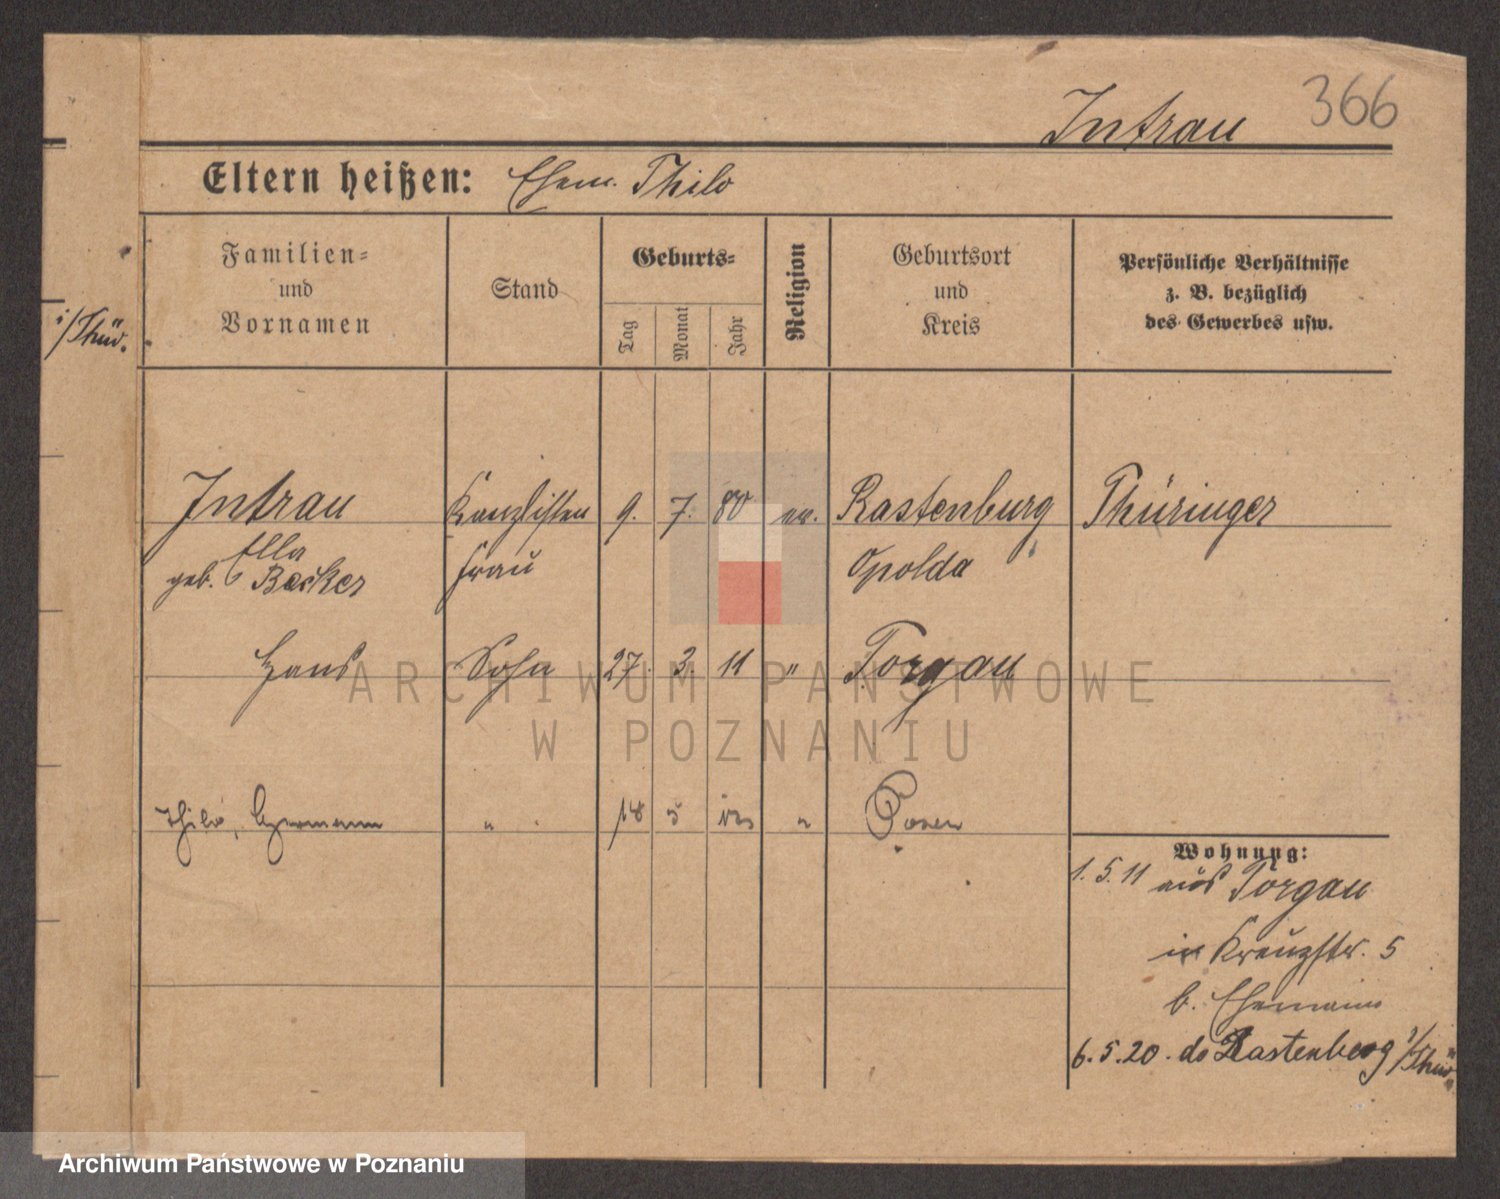 366
Intrau
Eltern heißen: Ehem. Thilo
Familien= und Vornamen
Stand
Geburts=
Tag Monat Jahr
Religion
Geburtsort und Kreis
Persönliche Verhältnisse z. B. bezüglich des Gewerbes usw.
i/Thür.
Intrau Kanzlisten 9. 7. 80 ev. Rastenburg Thüringer
Ella frau Opolda
geb. Becker
Hans Sohn 27. 3. 11 " Torgau
Thilo, Hermann " 18 5 Posen
Wohnung:
1. 5. 11 aus Torgau
in Kreuzstr. 5
b. Ehemann
6. 5. 20. do Rastenberg i/Thür.
ARCHIWUM PAŃSTWOWE
W POZNANIU
Archiwum Państwowe w Poznaniu